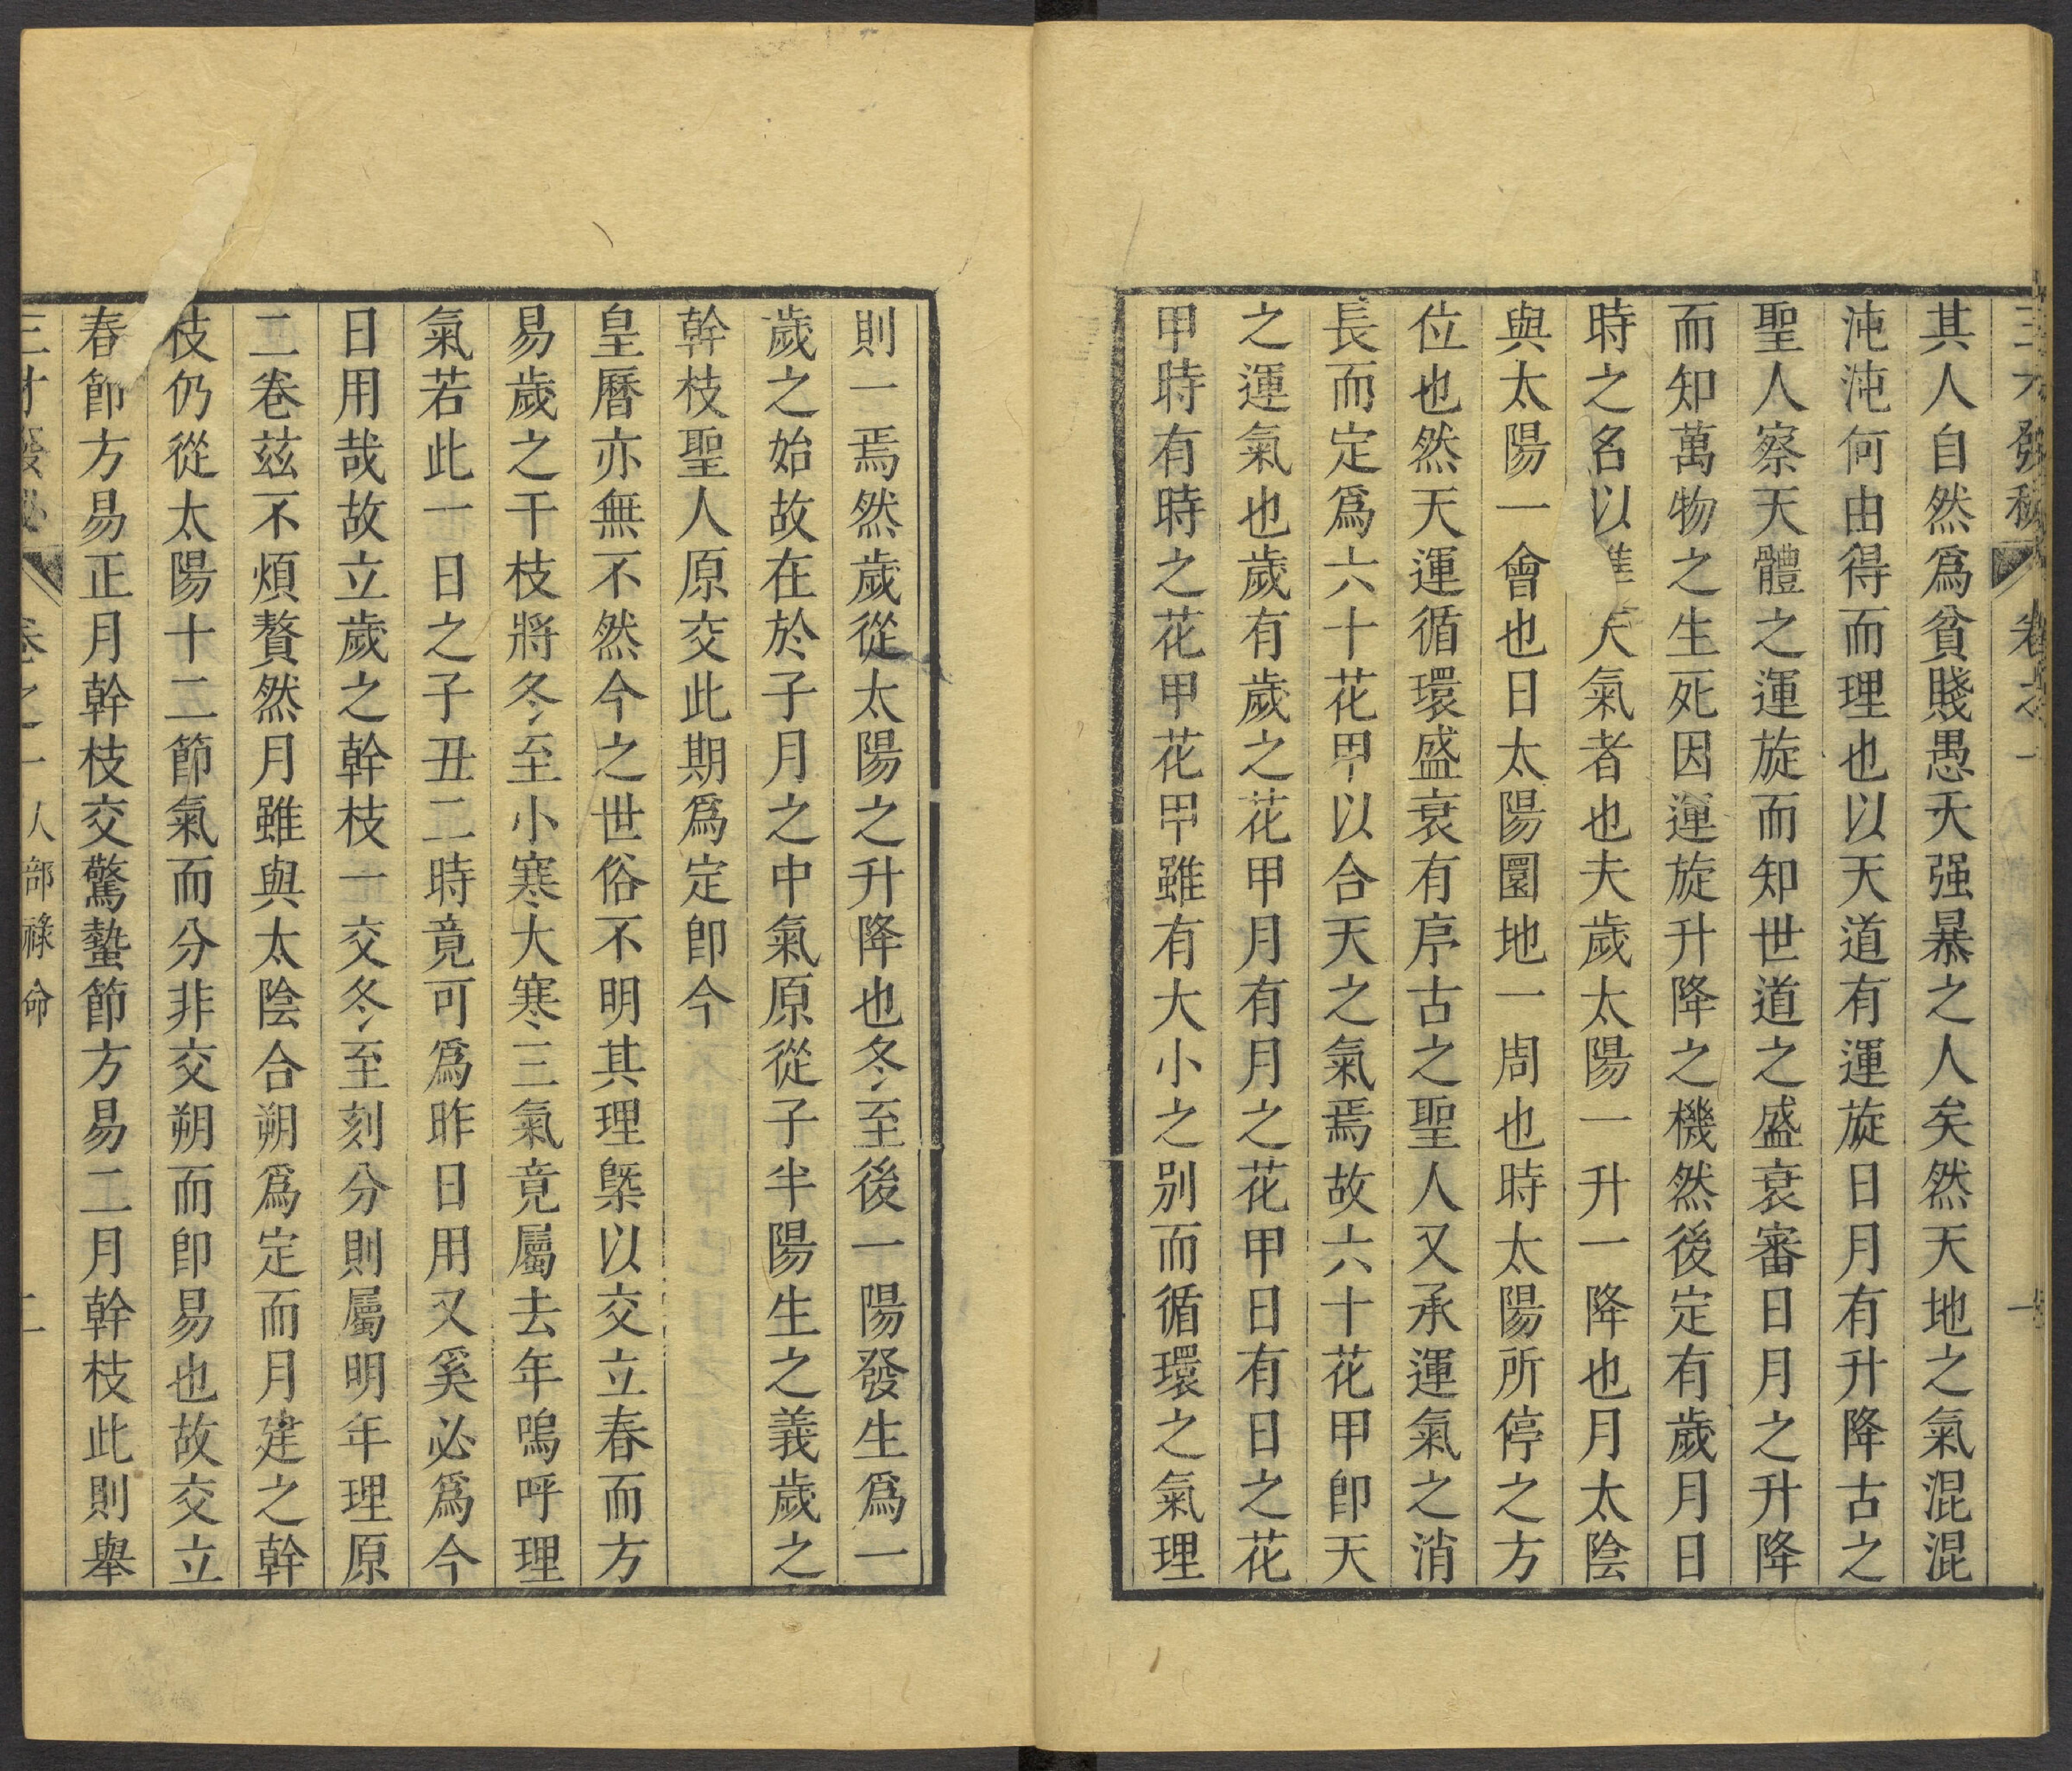 其人自然爲貧賤愚夭强暴之人矣然天地之氣混混
沌沌何由得而理也以天道有運旋日月有升降古之
聖人察天體之運旋而知世道之盛衰審日月之升降
而知萬物之生死因運旋升降之機然後定有歲月日
時之名以天氣者也夫歲太陽一升一降也月太陰
與太陽一會也日太陽圜地一周也時太陽所停之方
位也然天運循環盛衰有序古之聖人又承運氣之消
長而定爲六十花甲以合天之氣焉故六十花甲卽天
之運氣也歲有歲之花甲月有月之花甲日有日之花
甲時有時之花甲花甲雖有大小之别而循環之氣理
則一焉然歲從太陽之升降也冬至後一陽發生爲一
歲之始故在於子月之中氣原從子半陽生之義歲之
幹枝聖人原交此期爲定卽今
皇曆亦無不然今之世俗不明其理槩以交立春而方
易歲之干枝將冬至小寒大寒三氣竟屬去年嗚呼理
氣若此一日之子丑二時竟可爲昨日用又奚必爲今
日用哉故立歲之幹枝一交冬至刻分則屬明年理原
二卷茲不煩贅然月雖與太陰合朔爲定而月建之幹
枝仍從太陽十二節氣而分非交朔而卽易也故交立
春節方易正月幹枝交驚蟄節方易二月幹枝此則舉
三才發秘 卷之一 人部祿命 二